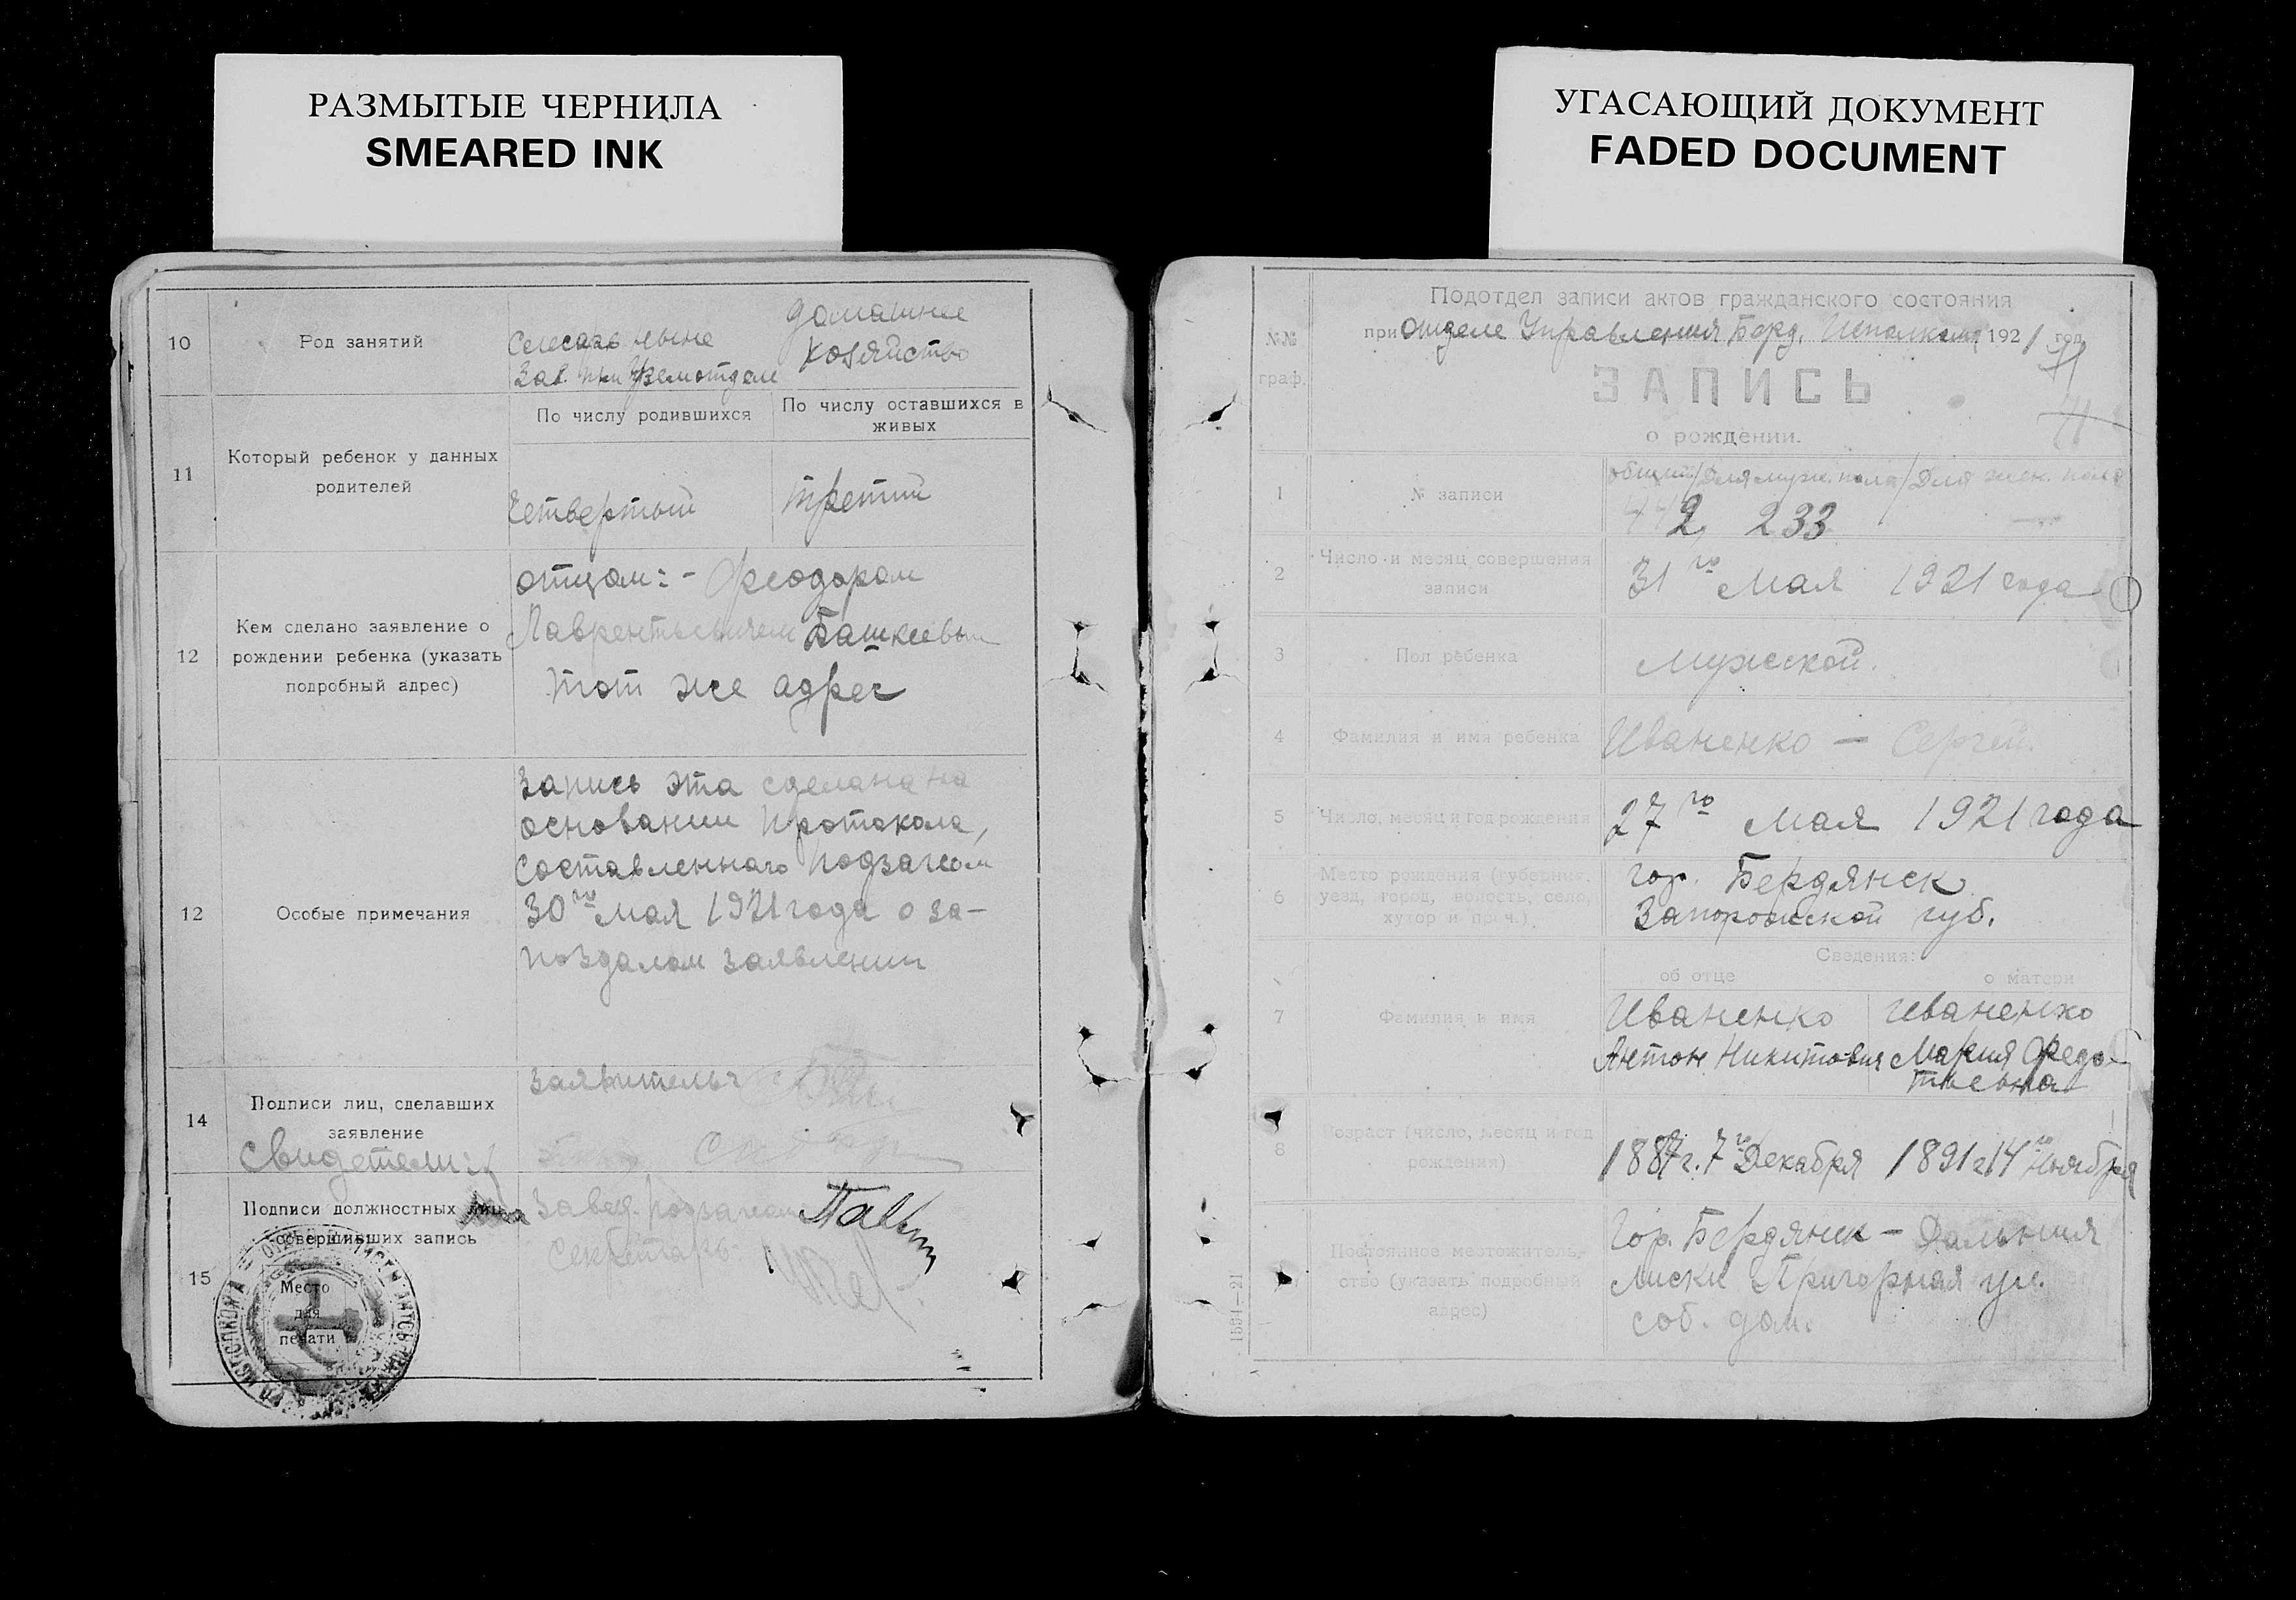 РАЗМЫТЫЕ ЧЕРНИЛА
SMEARED INK
УГАСАЮЩИЙ ДОКУМЕНТ
FADED DOCUMENT
10
Род занятий
Слесарь ныне
Зав. при
домашнее
хозяйство
11
Который ребенок у данных
родителей
По числу родившихся
По числу оставшихся в
живых
Четвертый
третий
12
Кем сделано заявление о
рождении ребенка (указать
подробный адрес)
отцом: - Феодором
Лаврентьевичем Башкеевым
тот же адрес
12
Особые примечания
Запись эта сделана на
основании протокола,
составленнаго Подзагсом
30го мая 1921 года о за-
поздалом заявлении
14
Подписи лиц, сделавших
заявление
свидетели:
заявитель:
15
Подписи должностных лиц,
совершивших запись
Место
для
печати
Завед. Подзагсом
Секретарь:
№№
граф.
Подотдел записи актов гражданского состояния
при Отделе Управления Берд. Исполкома 1921 год
71
ЗАПИСЬ
71
о рождении.
1
№ записи
общий/Для муж. пола/Для жен. пола
442 233 —
2
Число и месяц совершения
записи
31го Мая 1921 года
3
Пол ребенка
мужской.
4
Фамилия и имя ребенка
Иваненко — Сергей.
5
Число, месяц и год рождения
27го мая 1921 года
6
Место рождения (губерния,
уезд, город, волость, село,
хутор и проч.)
гор. Бердянск
Запорожской губ.
Сведения:
об отце
о матери
7
Фамилия и имя
Иваненко
Антон Никитович
Иваненко
Мария Федо-
тьевна
8
Возраст (число, месяц и год
рождения)
1887г. 7го Декабря
1891г. 14го Ноября
Постоянное местожитель-
ство (указать подробный
адрес)
Гор. Бердянск — Дальния
Лиски Пригорная ул.
соб. дом.
1594—21